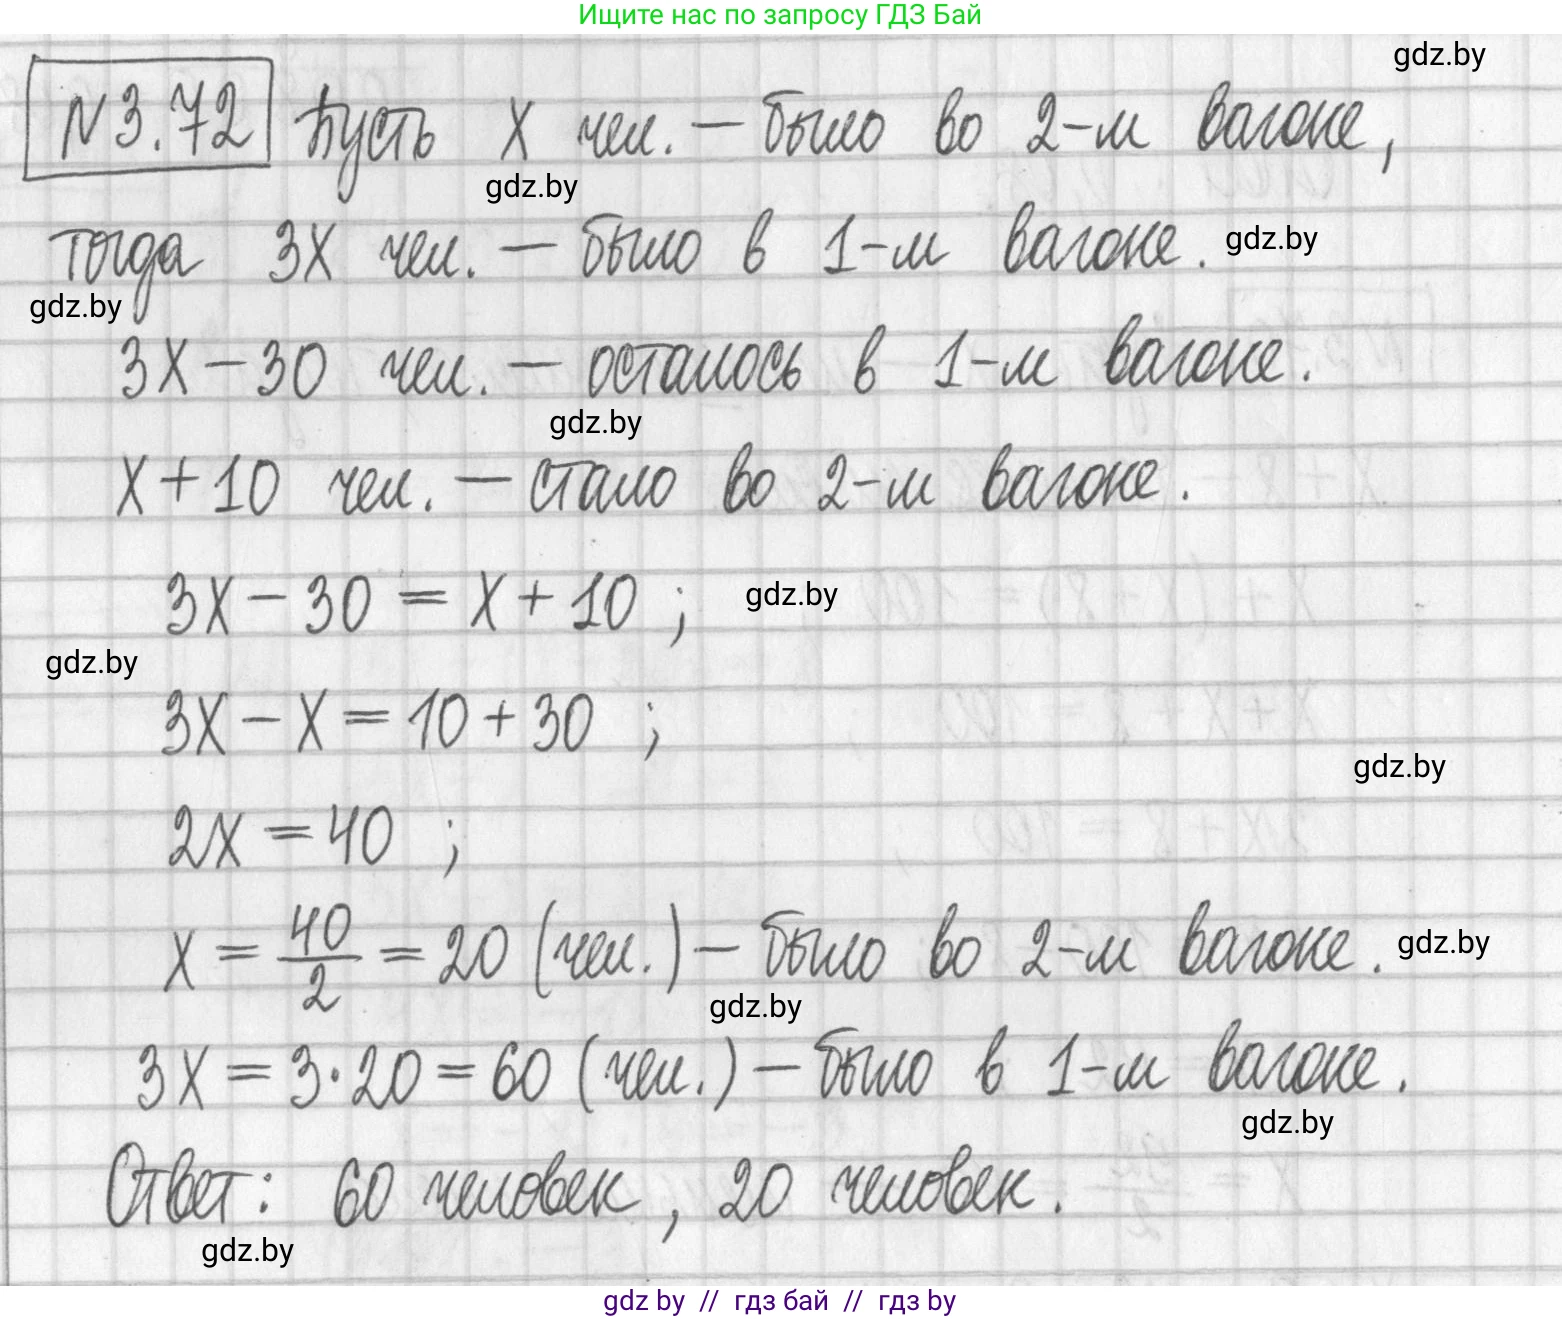 Ищите нас по запросу ГДЗ Бай
gdz.by
N 3.72 Пусть x чел. — было во 2-м вагоне,
gdz.by
тогда 3x чел. — было в 1-м вагоне. gdz.by
gdz.by
3x - 30 чел. — осталось в 1-м вагоне.
gdz.by
x + 10 чел. — стало во 2-м вагоне.
3x - 30 = x + 10 ; gdz.by
gdz.by
3x - x = 10 + 30 ;
gdz.by
2x = 40 ;
x = 40/2 = 20 (чел.) — было во 2-м вагоне. gdz.by
gdz.by
3x = 3·20 = 60 (чел.) — было в 1-м вагоне.
gdz.by
Ответ: 60 человек, 20 человек.
gdz.by
gdz by // гдз бай // гдз by